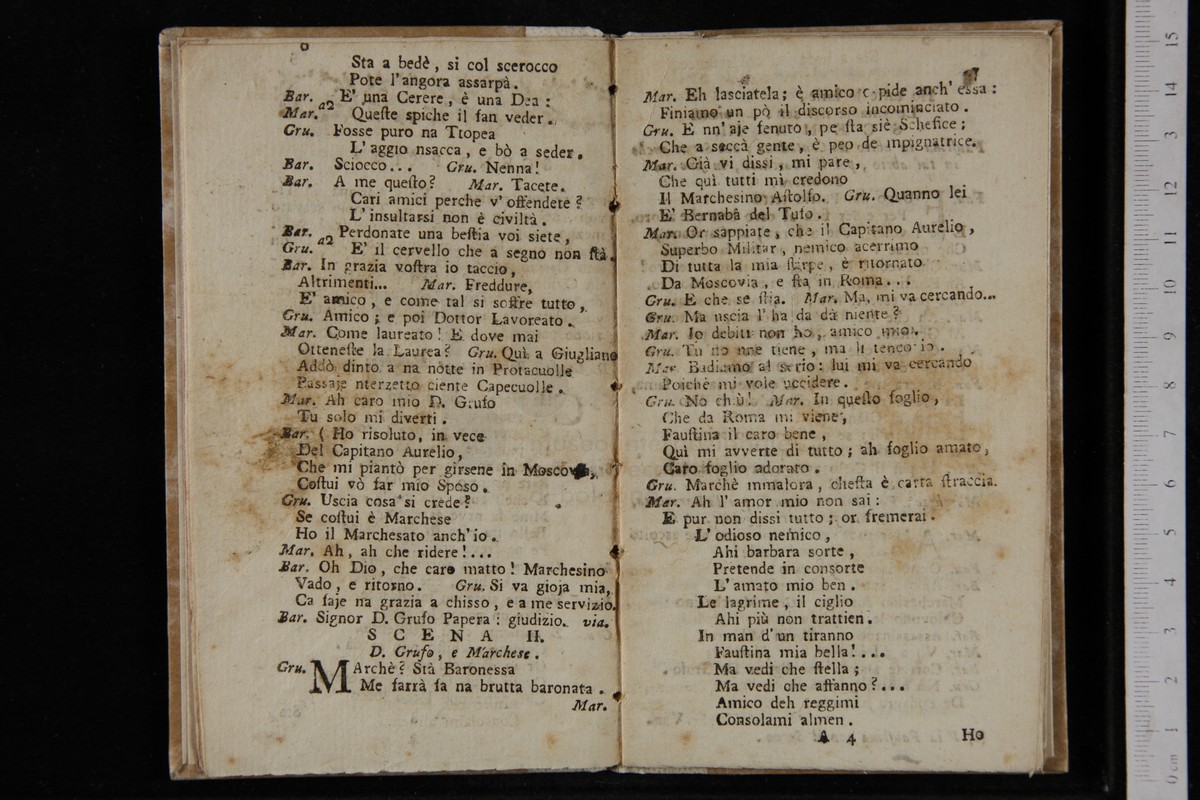 Sta a bedè, si col scerocco
Pote l'angora assarpà.
Bar. a2 E' una Cerere, è una Dea:
Mar. Queſte spiche il fan veder.
Gru. Fosse puro na Ttopea
L'aggio nsacca, e bò a seder.
Bar. Sciocco... Gru. Nenna!
Bar. A me queſto? Mar. Tacete.
Cari amici perche v'offendete?
L'insultarsi non è civiltà.
Bar. a2 Perdonate una beſtia voi siete,
Gru. E' il cervello che a segno non ſtà.
Bar. In grazia voſtra io taccio,
Altrimenti... Mar. Freddure,
E' amico, e come tal si soffre tutto,
Gru. Amico; e poi Dottor Lavoreato.
Mar. Come laureato! E dove mai
Otteneſte la Laurea? Gru. Quì a Giugliano
Addò dinto a na notte in Protacuolle
Passaje nterzetto ciente Capecuolle.
Mar. Ah caro mio D. Grufo
Tu solo mi diverti.
Bar. (Ho risoluto, in vece
Del Capitano Aurelio,
Che mi piantò per girsene in Moscovia,
Coſtui vò far mio Sposo.
Gru. Uscia cosa si crede?
Se coſtui è Marchese
Ho il Marchesato anch'io.
Mar. Ah, ah che ridere!...
Bar. Oh Dio, che caro matto! Marchesino
Vado, e ritorno. Gru. Si va gioja mia,
Ca faje na grazia a chisso, e a me servizio.
Bar. Signor D. Grufo Papera: giudizio. via.
SCENA II.
D. Grufo, e Marchese.
Gru. MArchè? Stà Baronessa
Me farrà fa na brutta baronata.
Mar.
7
Mar. Eh lasciatela; è amico c pide anch'essa:
Finiamo un pò il discorso incominciato.
Gru. E nn'aje fenuto, pe ſta siè Schefice;
Che a seccà gente, è peo de mpignatrice.
Mar. Già vi dissi, mi pare,
Che quì tutti mi credono
Il Marchesino Aſtolfo. Gru. Quanno lei
E' Bernabà del Tufo.
Mar. Or sappiate, che il Capitano Aurelio,
Superbo Militar, nemico acerrimo
Di tutta la mia ſtirpe, è ritornato
Da Moscovia, e ſta in Roma...
Gru. E che se ſtia. Mar. Ma, mi va cercando...
Gru. Ma uscia l'ha da dà niente?
Mar. Io debiti non ho, amico mio.
Gru. Tu no nne tiene, ma li tenco io.
Mar. Badiamo al serio: lui mi va cercando
Poichè mi vole uccidere.
Gru. No chiù! Mar. In queſto foglio,
Che da Roma mi viene,
Fauſtina il caro bene,
Quì mi avverte di tutto; ah foglio amato,
Caro foglio adorato.
Gru. Marchè mmalora, cheſta è carta ſtraccia.
Mar. Ah l'amor mio non sai:
E pur non dissi tutto; or fremerai.
L'odioso nemico,
Ahi barbara sorte,
Pretende in consorte
L'amato mio ben.
Le lagrime, il ciglio
Ahi più non trattien.
In man d'un tiranno
Fauſtina mia bella!...
Ma vedi che ſtella;
Ma vedi che affanno?...
Amico deh reggimi
Consolami almen.
A 4 Ho
15
14
13
12
11
10
9
8
7
6
5
4
3
2
1
0 cm